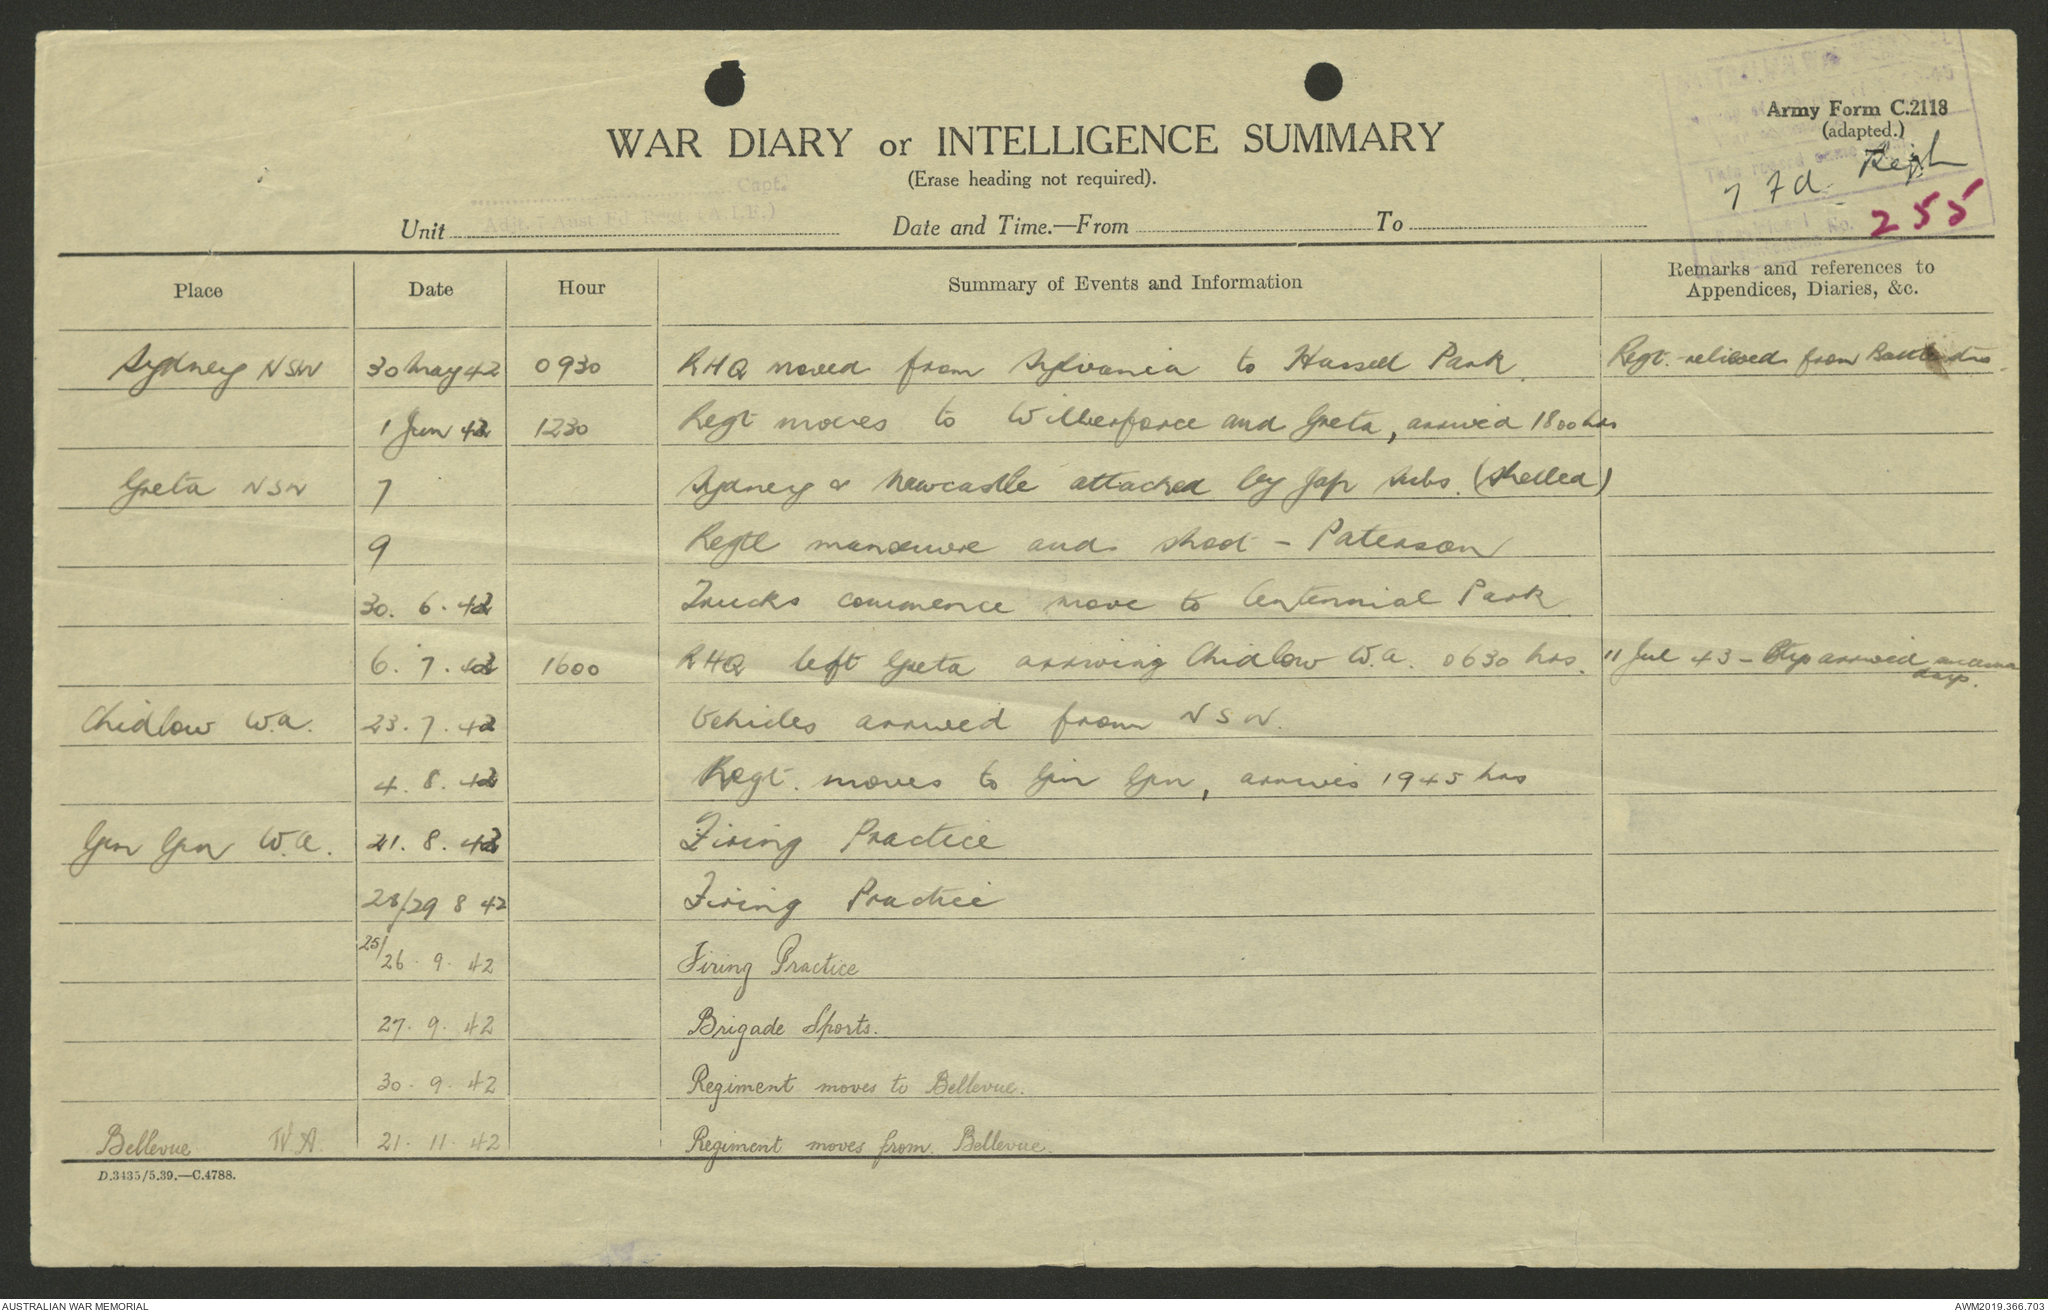 Army Form C.2118
(adapted.)
WAR DIARY or INTELLIGENCE SUMMARY
(Erase heading not required).
7 Fd. Regt
255
Capt.
Adjt. 7 Aust. Fd. Regt. (A.I.F.)
Unit Date and Time.—From To
Place Date Hour Summary of Events and Information Remarks and references to
Appendices, Diaries, &c.
Sydney NSW 30 May 42 0930 RHQ moved from Sylvania to Hassell Park. Regt. relieved from
1 Jun 42 1230 Regt moves to Wilberforce and Greta, arrived 1800 hrs
Greta NSW 7 Sydney & Newcastle attacked by Jap Subs. (Shelled)
9 Regtl manoeuvre and shoot - Paterson
30. 6. 42 Trucks commence move to Centennial Park
6. 7. 42 1600 RHQ left Greta arriving Chidlow W.A. 0630 hrs. 11 Jul 43 - arrived
days.
Chidlow W.A. 23. 7. 42 Vehicles arrived from NSW.
4. 8. 42 Regt. moves to Gin Gin, arrives 1945 hrs
Gin Gin W.A. 21. 8. 42 Firing Practice
28/29 8 42 Firing Practice
25/26. 9. 42 Firing Practice
27. 9. 42 Brigade Sports.
30. 9. 42 Regiment moves to Bellevue.
Bellevue WA. 21. 11. 42 Regiment moves from Bellevue.
D.3435/5.39.—C.4788.
AUSTRALIAN WAR MEMORIAL AWM2019.366.703